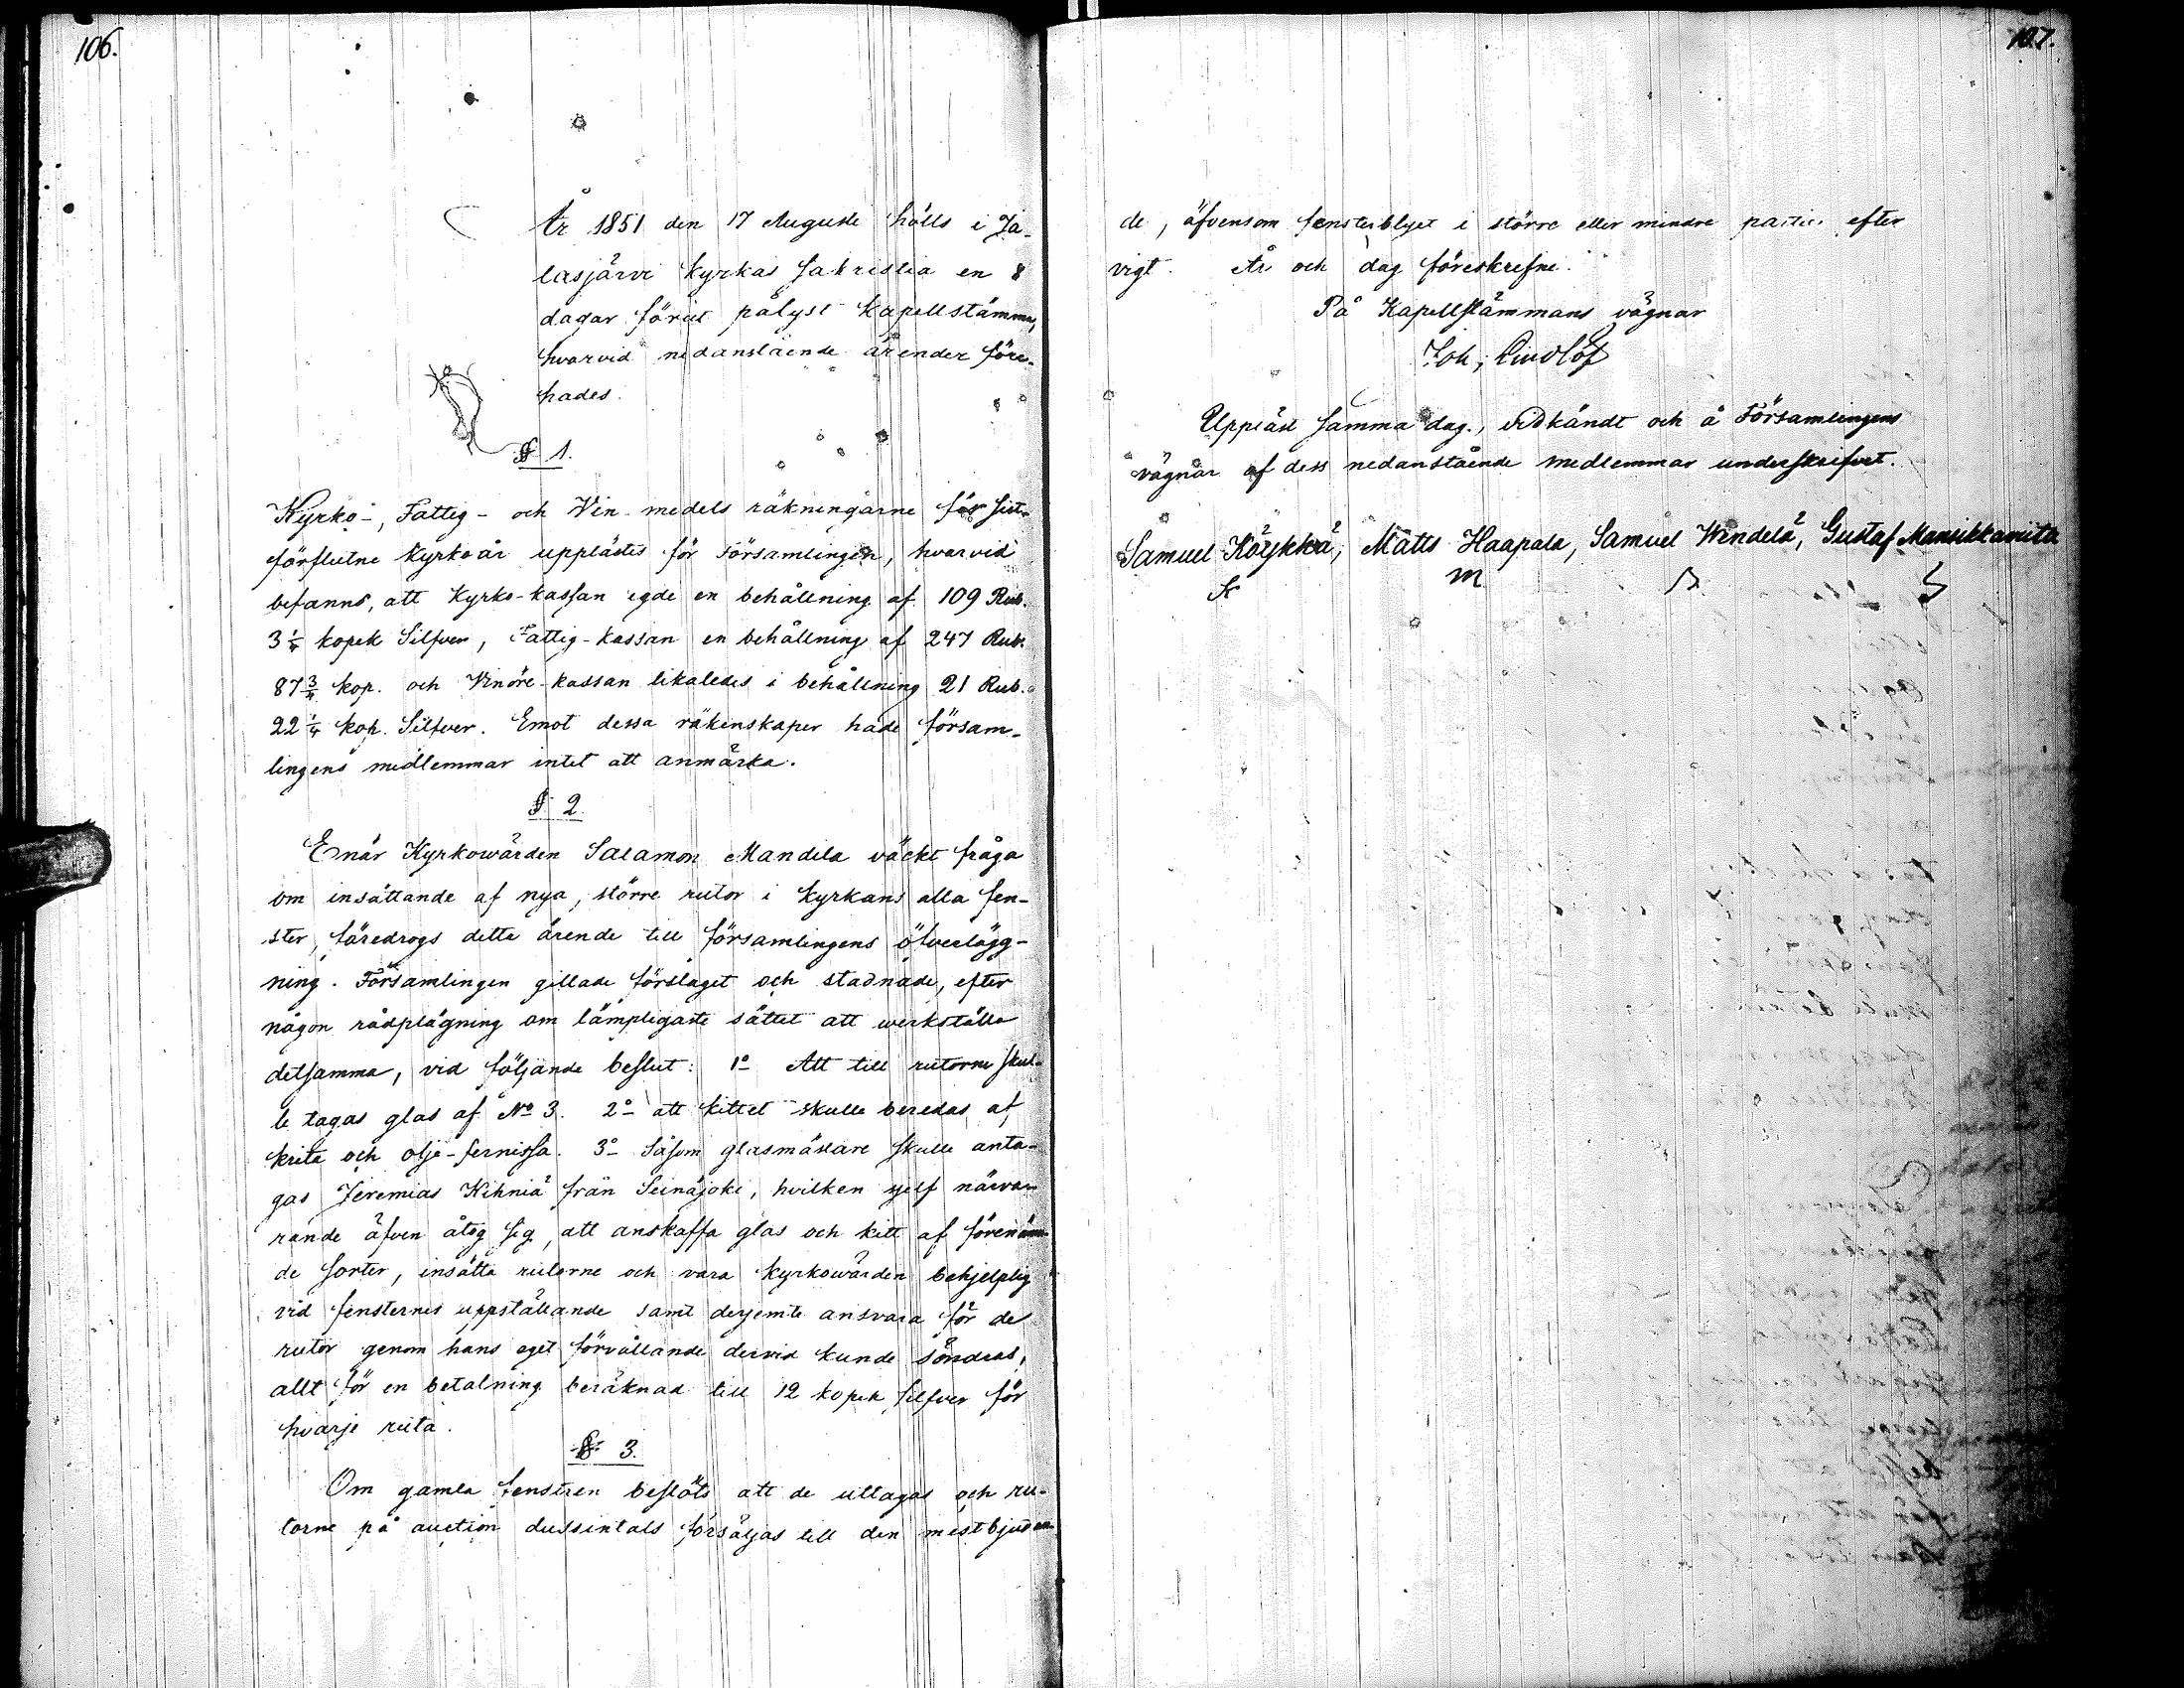 106.
År 1851 den 17 Augusti hölls i Ja-
lasjärvi kyrkas sakristia en 8
dagar förut pålyst kapellstämma,
hvarvid nedanstående ärender före-
hades.
§ 1.
Kyrko-, Fattig- och Vin-medels räkningarne för sist-
förflutne kyrkoår upplästes för Församlingen, hvarvid
befanns, att Kyrko-kassan egde en behållning af 109 Rub.
3 1/4 kopek Silfver, Fattig-kassan en behållning af 247 Rub.
87 3/4 kop. och Vinöre-kassan likaledes i behållning 21 Rub.
22 1/4 kop. Silfver. Emot dessa räkenskaper hade försam-
lingens medlemmar intet att anmärka.
§ 2.
Enär Kyrkowärden Salamon Mandila väckt fråga
om insättande af nya, större rutor i kyrkans alla fen-
ster, föredrogs detta ärende till församlingens öfverlägg-
ning. Församlingen gillade förslaget och stadnade, efter
någon rådplägning om lämpligaste sättet att werkställa
detsamma, vid följande beslut: 1o Att till rutorne skul-
le tagas glas af No 3. 2o att kittet skulle beredas af
krita och olje-fernissa. 3o Såsom glasmästare skulle anta-
gas Jeremias Kihniä från Seinäjoki, hvilken sjelf närva-
rande äfven åtog sig, att anskaffa glas och kitt af förenäm-
de sorter, insätta rutorne och vara kyrkowärden behjelplig
vid fensternes uppställande samt derjemte ansvara för de
rutor genom hans eget förvållande dervid kunde söndras,
allt för en betalning beräknad till 12 kopek silfver för
hvarje ruta.
§ 3.
Om gamla fenstren beslöts att de uttagas och ru-
torne på auction dussintals försäljas till den mestbjudan-
107.
de, äfvensom fensterblyet i större eller mindre partier efter
vigt. År och dag föreskrefne.
På Kapellstämmans vägnar
Joh. Lindlöf
Uppläst samma dag, vidkändt och å Församlingens
vägnar af dess nedanstående medlemmar underskrifvet.
Samuel Köykkä, Matts Haapala, Samuel Windelä, Gustaf Mansikkamita
m